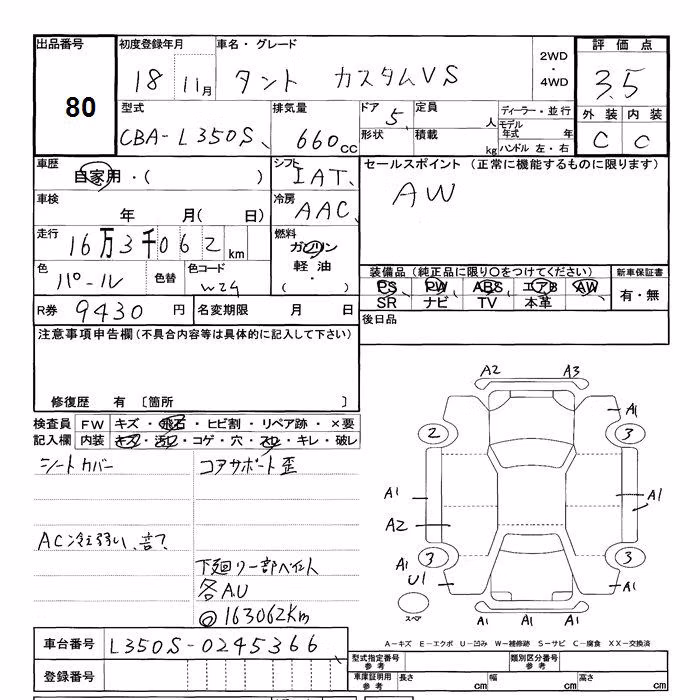 出品番号 初度登録年月 車名・グレード 2WD・4WD 評価点
80 18 11月 タント カスタムVS 3.5
型式 排気量 ドア 定員 ディーラー・並行 外装 内装
CBA-L350S 660cc 5 人 モデル年式 年 C C
形状 積載 kg ハンドル 左・右
車歴 自家用・( ) シフト IAT セールスポイント(正常に機能するものに限ります)
車検 年 月( 日) 冷房 AAC AW
走行 16万3千062km 燃料 ガソリン・軽油・( )
色 パール 色替 色コード W24 装備品(純正品に限り○をつけてください) 新車保証書
PS PW ABS エアB AW 有・無
SR ナビ TV 本革
R券 9430円 名変期限 月 日 後日品
注意事項申告欄(不具合内容等は具体的に記入して下さい)
修復歴 有 〔箇所 〕
検査員 FW キズ・飛石・ヒビ割・リペア跡・×要
記入欄 内装 キズ・汚れ・コゲ・穴・スレ・キレ・破レ
シートカバー コアサポート歪
AC冷え弱い、音
下廻り一部ペイント
各AU
@163062km
A2 A3
A1
2 3
A1 A1
A2
A1 3 3
U1 A1
スペア A1 A1 A1
A-キズ E-エクボ U-凹み W-補修跡 S-サビ C-腐食 XX-交換済
車台番号 L350S-0245366
型式指定番号参考 類別区分番号参考
登録番号 車庫証明用参考 長さ cm 幅 cm 高さ cm